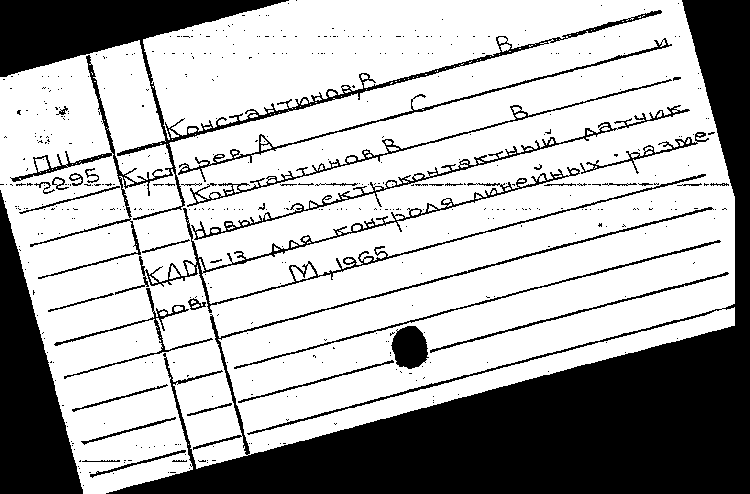 Константинов, В В и
ПII Кустарев, А С
2295 Константинов, В В
Новый электроконтактный датчик
КДМ-13 для контроля линейных разме-
ров. М., 1965